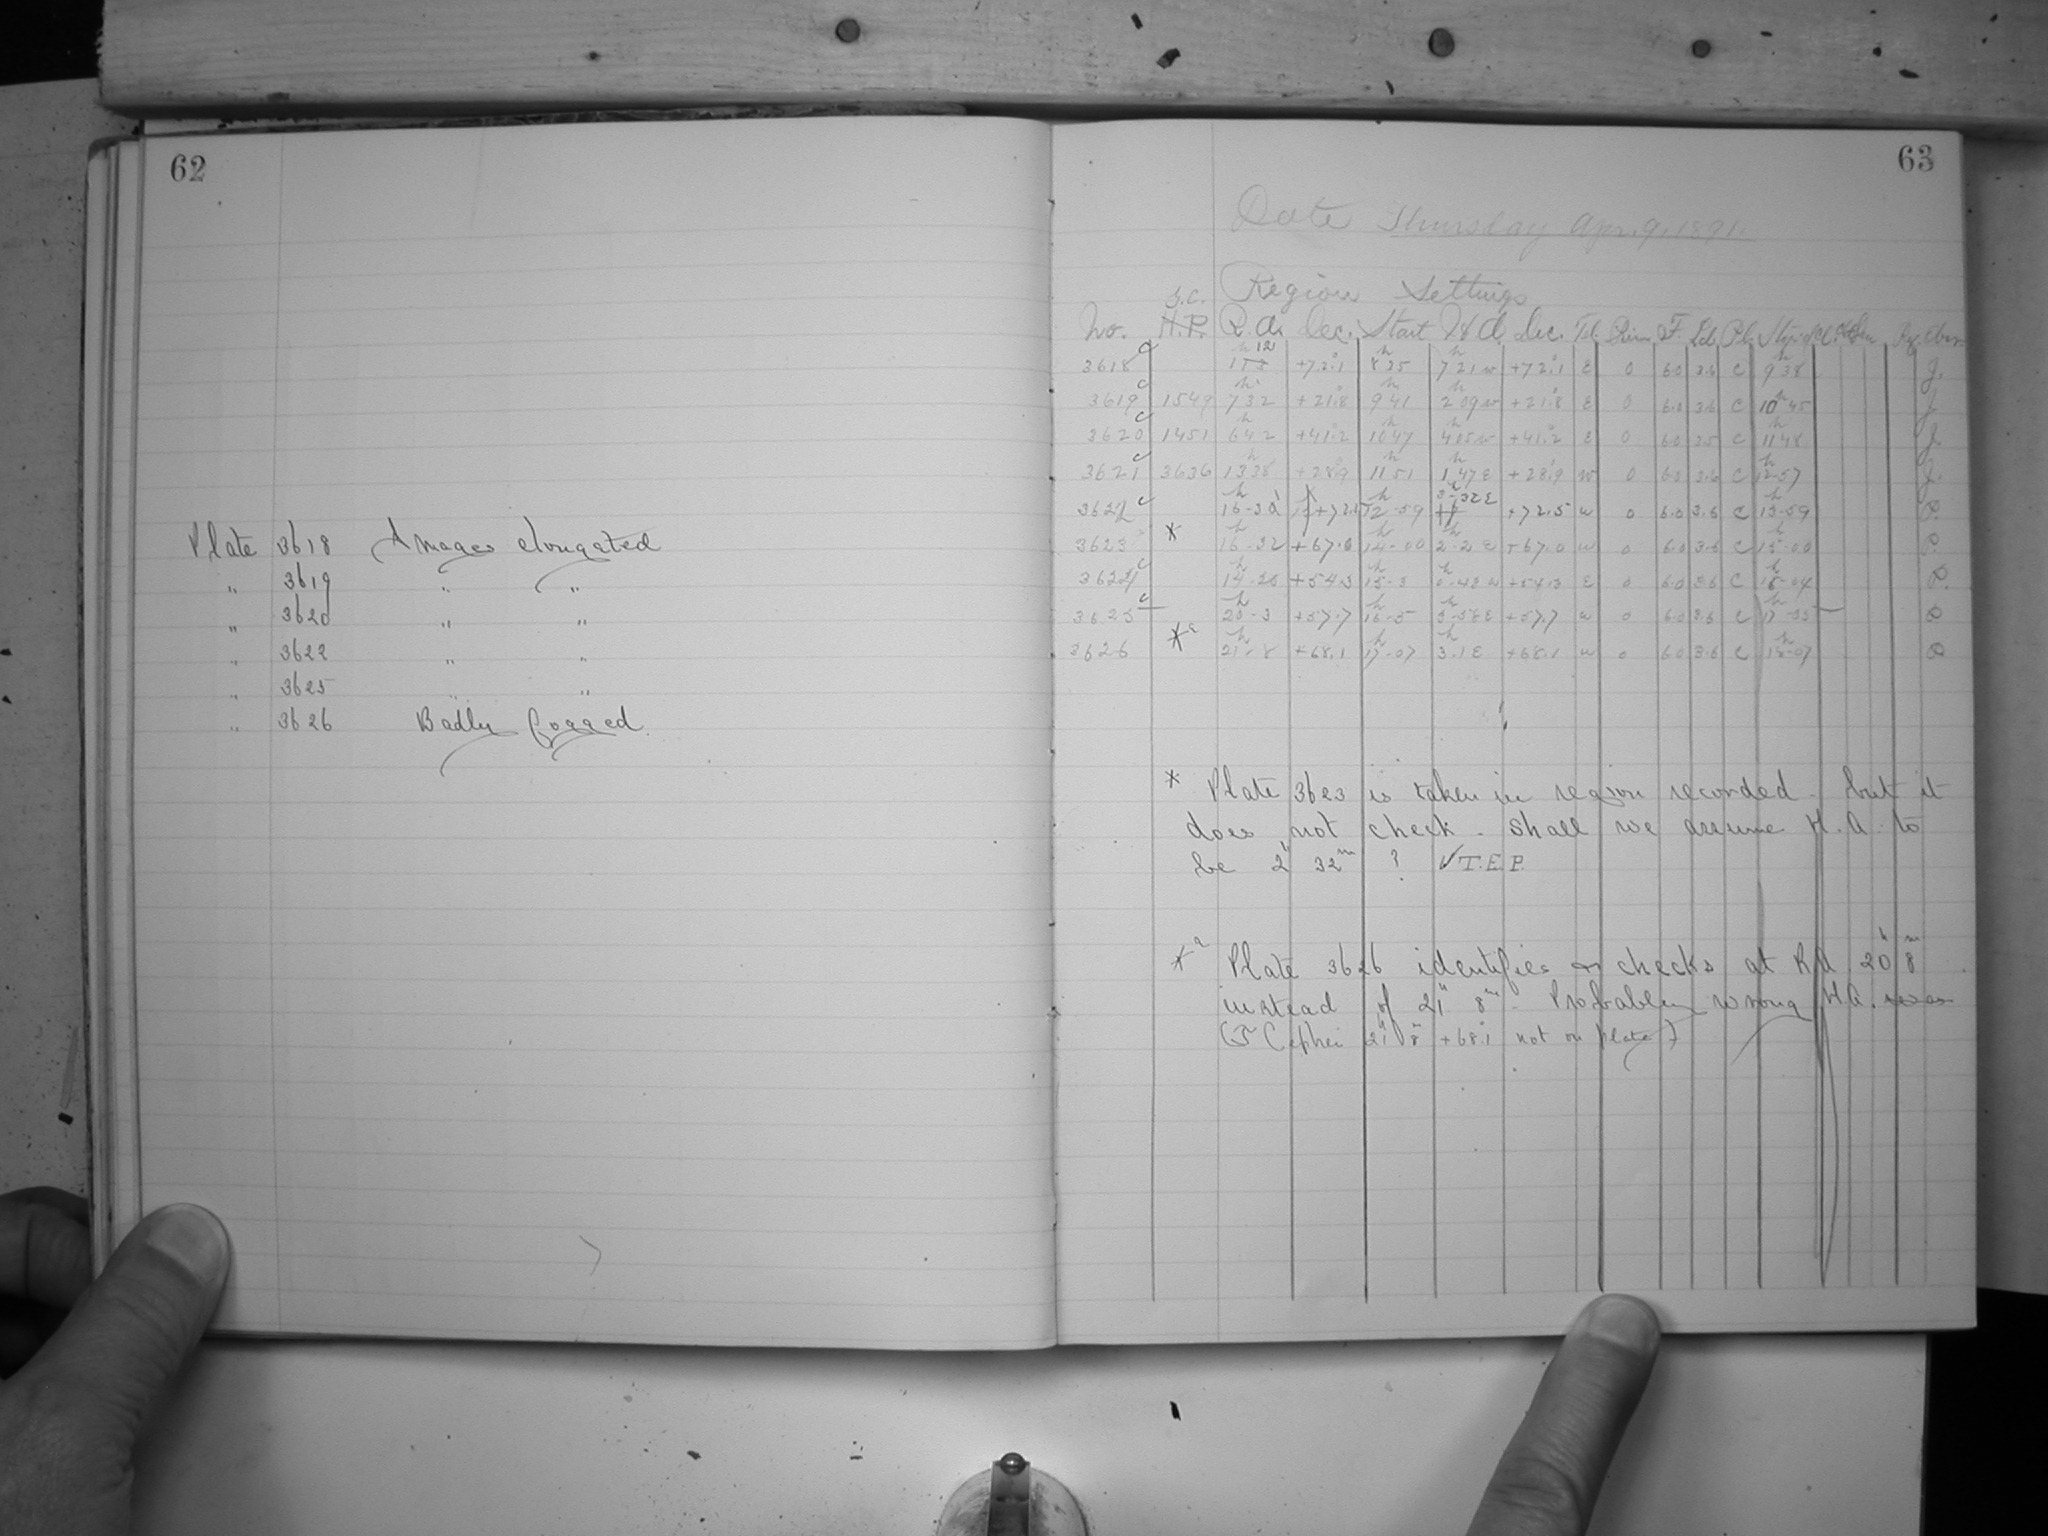 62
Plate 3618 Images elongated
" 3619 " "
" 3620 " "
" 3622 " "
" 3625 " "
" 3626 Badly fogged.
63
Date Thursday Apr. 9, 1891.
Region Settings
No. H.P. R.A. Dec. Start H.A. Dec. Tel. F. Pl. Stop
3618 c 12 +72.1 835 721 w +72.1 E 0 6.0 3.6 C 938 J.
3619 c 1549 732 +21.8 941 209 w +21.8 E 0 6.0 3.6 C 10 45 J
3620 c 1451 642 +41.2 1047 405 w +41.2 E 0 6.0 3.5 C 1148 J
3621 c 3636 1338 +28.9 1151 1 47 E +28.9 W 0 6.0 3.6 C 12-57 J.
3622 c 16-32 12-59 3-32 E +72.5 W 0 6.0 3.6 C 13-59
3623 * 16-32 +67.0 14-00 2-2 E +67.0 W 0 6.0 3.6 C 15-00
3624 c 14-20 +54.3 15-3 0-43 W +54.3 E 0 6.0 3.6 C 16-04
3625 c 20-3 +57.7 16-5 3-58 E +57.7 W 0 6.0 3.6 C 17-05
3626 *a 21-8 +68.1 17-07 3.1 E +68.1 W 0 6.0 3.6 C 18-07
* Plate 3623 is taken in region recorded - but it
does not check - shall we assume H.A. to
be 2h 32m ? ✓ T.E.P.
*a Plate 3626 identifies & checks at R.A. 20h 8m
instead of 21h 8m - Probably wrong H.A.
(T Cephei 21h 8m +68.1 not on plate)